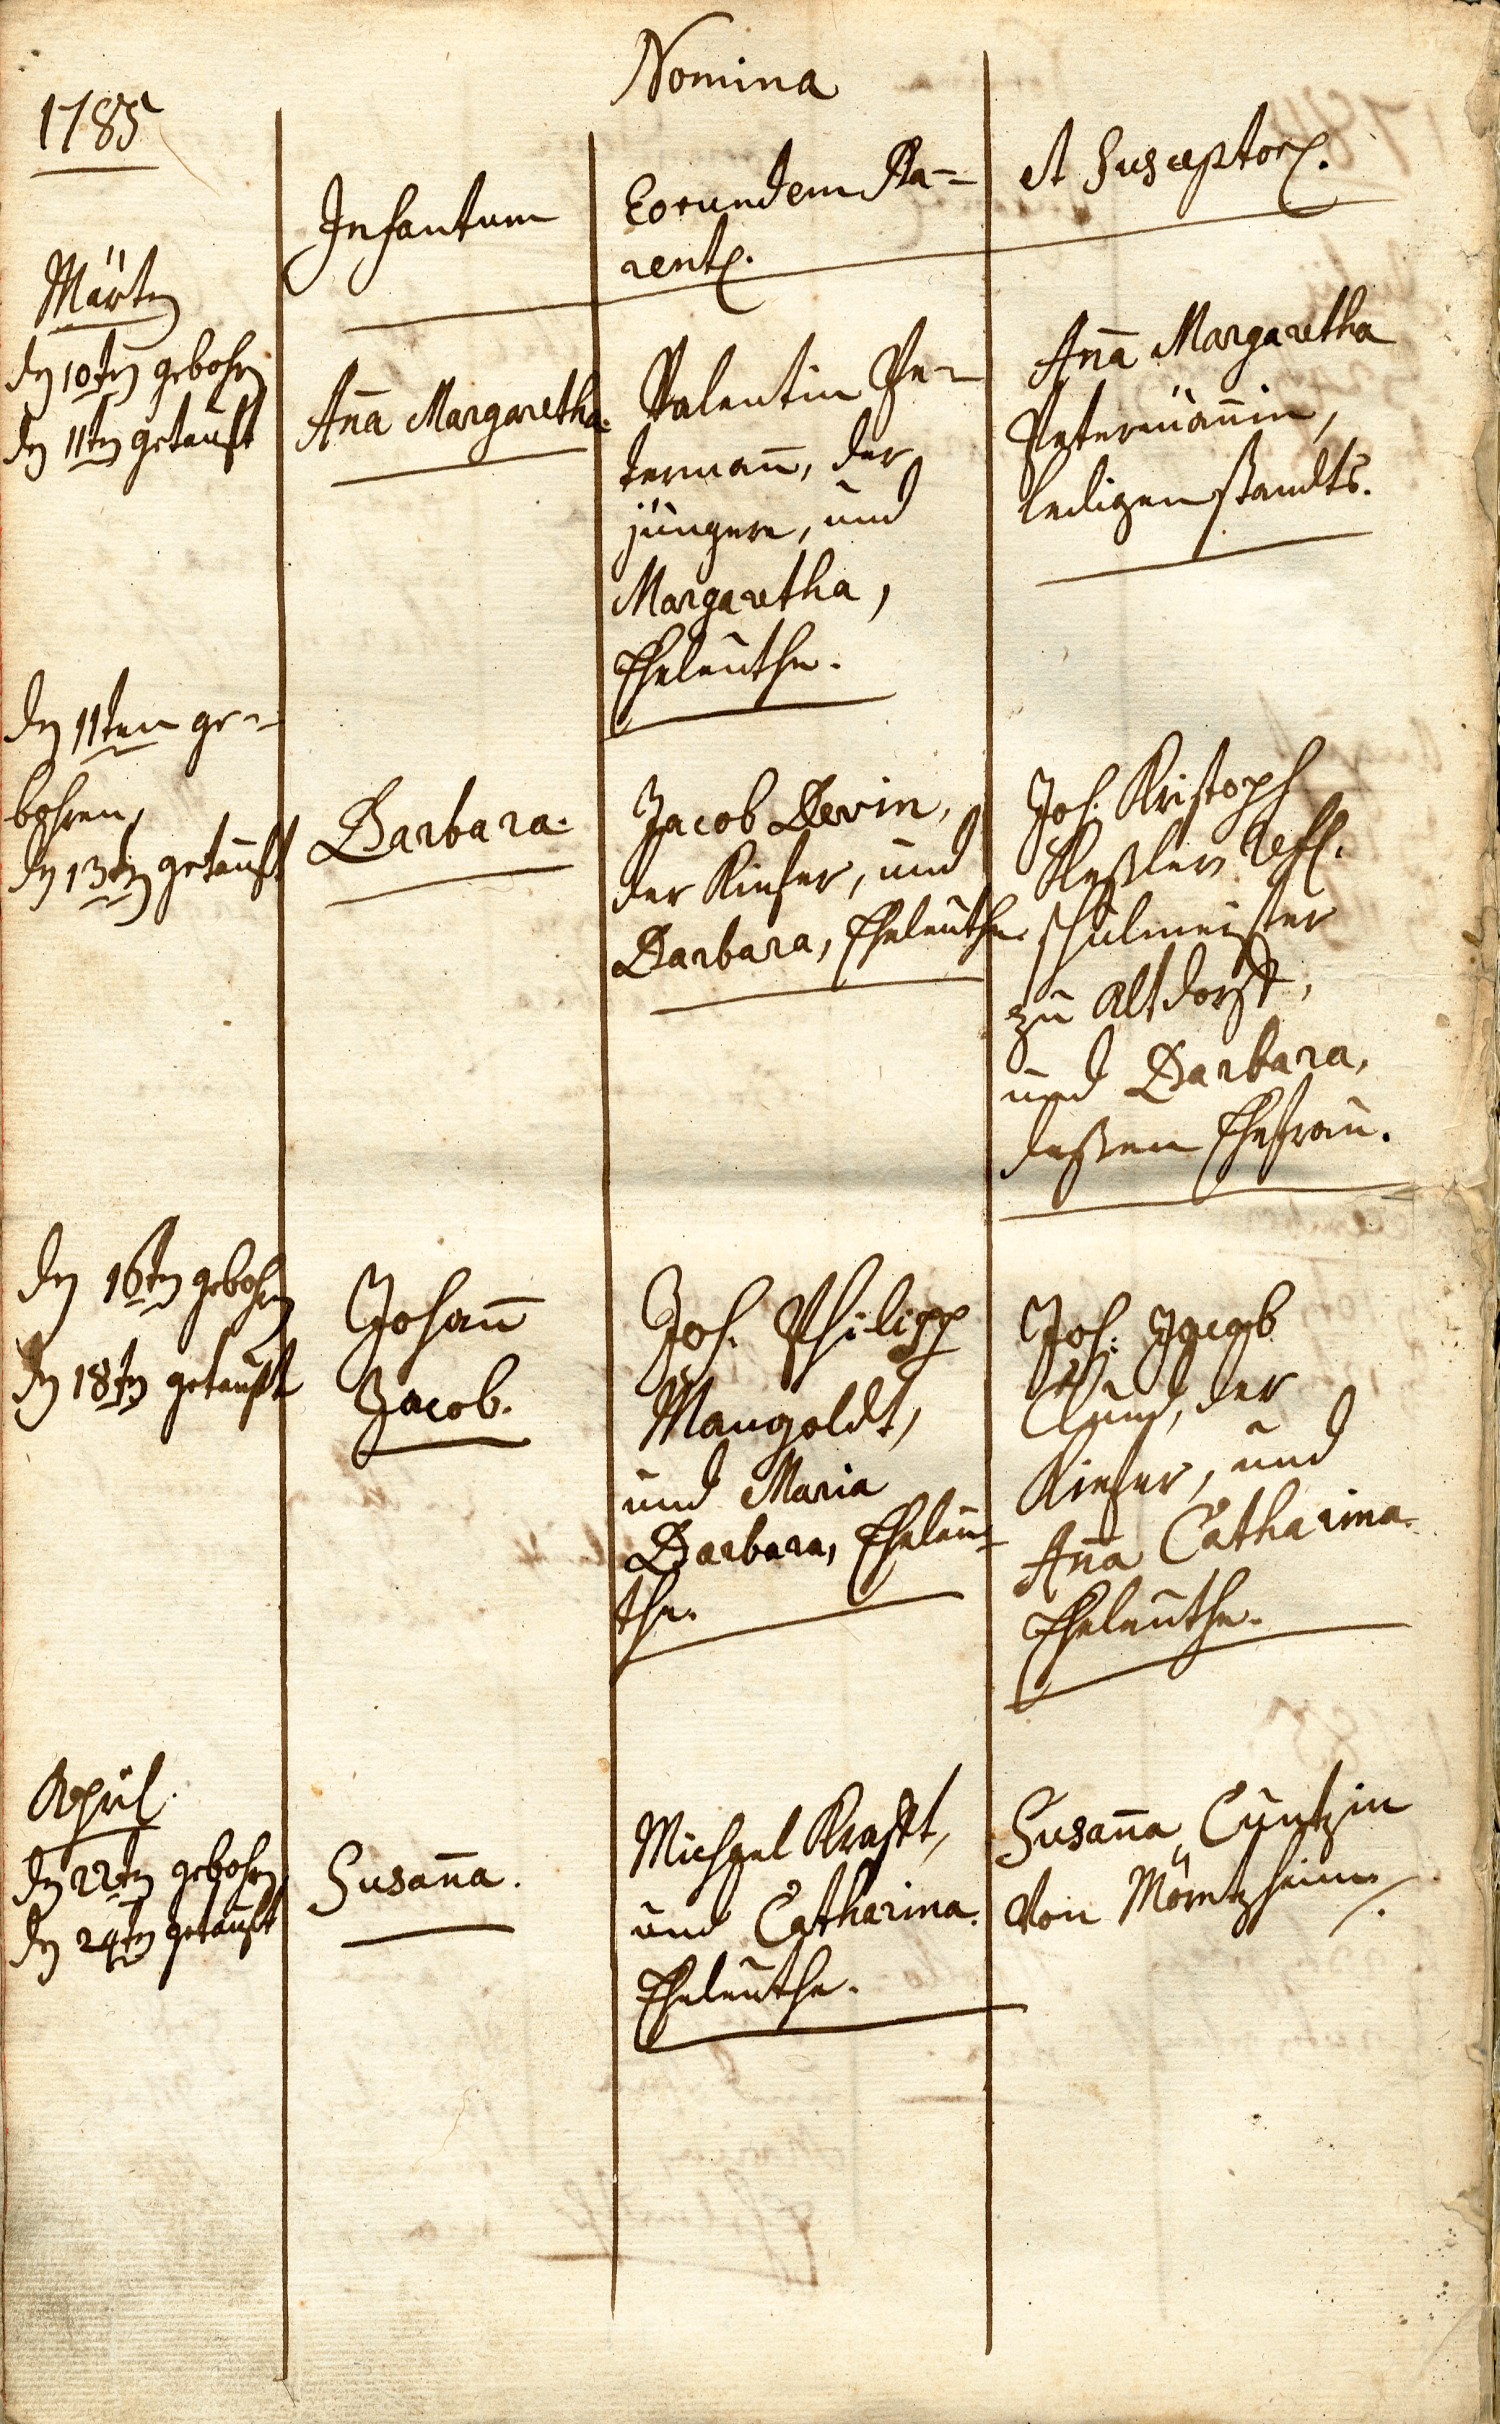 1785
Nomina
Infantum
Eorundem Pa=
rent.
et Susceptor.
Märtz
den 10ten gebohren
den 11ten getauft
Anna Margaretha.
Valentin Pe=
termann, der
jüngere, und
Margaretha,
Eheleuthe.
Anna Margaretha
Petermännin,
ledigen standts.
den 11ten ge=
bohren,
den 13ten getauft
Barbara.
Jacob Devin,
der Kiefer, und
Barbara, Eheleuthe.
Joh. Kristoph
Keßler, Ref.
schulmeister
zu Altdorff,
und Barbara,
deßen Ehefrau.
den 16ten gebohren
den 18ten getauft
Johann
Jacob.
Joh. Philipp
Mangoldt,
und Maria
Barbara, Eheleu=
the.
Joh. Jacob
der
Kiefer, und
Anna Catharina
Eheleuthe.
April.
den 22ten gebohren
den 24ten getauft
Susanna.
Michael Krafft,
und Catharina.
Eheleuthe.
Susanna Cuntzin
von Mörntzheim.